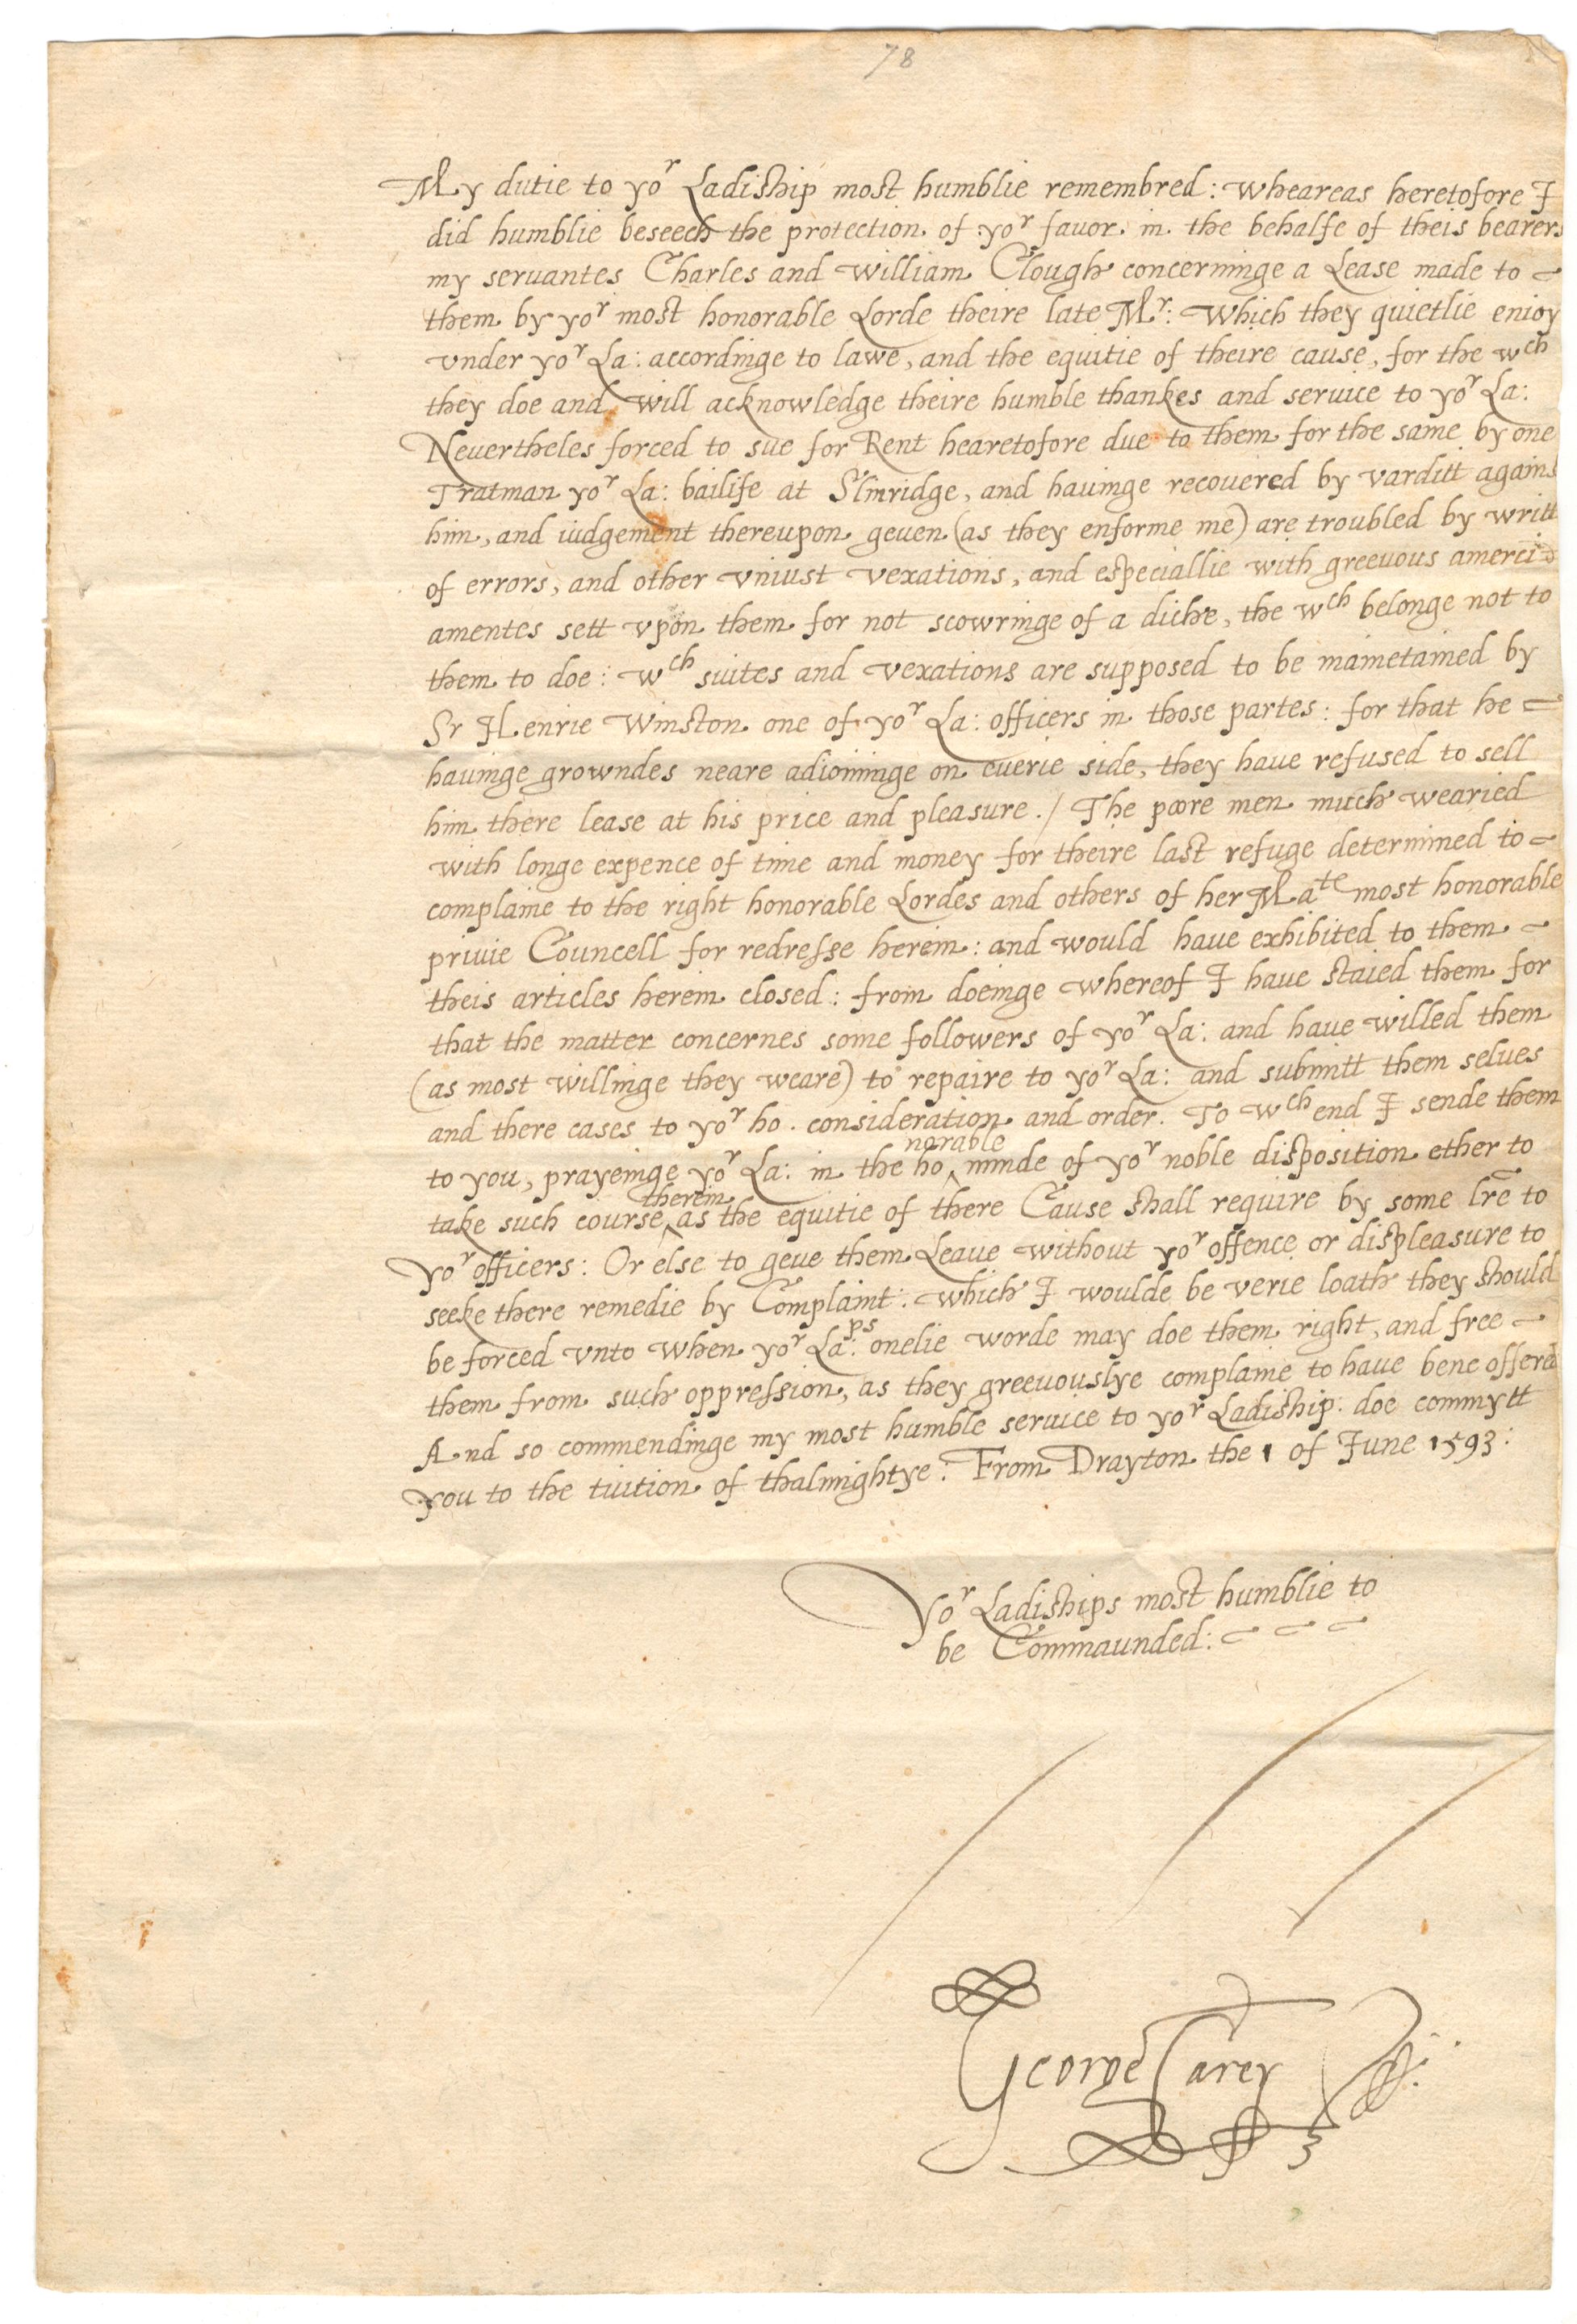 78
My dutie to yor Ladiship most humblie remembred: wheareas heretofore I
did humblie beseech the protection of yor fauor in the behalfe of theis bearers
my seruantes Charles and william Clough concerninge a Lease made to
them by yor most honorable Lorde theire late Mr: which they quietlie enioy
vnder yor La: accordinge to lawe, and the equitie of theire cause, for the wch
they doe and will acknowledge theire humble thankes and seruice to yor La:
Neuertheles forced to sue for Rent hearetofore due to them for the same by one
Tratman yor La: bailife at Slinridge, and hauinge recouered by varditt agains
him, and iudgement thereupon geuen (as they enforme me) are troubled by writt
of errors, and other vniust vexations, and especiallie with greeuous amerci
amentes sett vpon them for not scowringe of a diche, the wch belonge not to
them to doe: wch suites and vexations are supposed to be mainetained by
Sr Henrie Winston one of yor La: officers in those partes: for that he
hauinge growndes neare adioininge on euerie side, they haue refused to sell
him there lease at his price and pleasure. / The poore men much wearied
with longe expence of time and money for theire last refuge determined to
complaine to the right honorable Lordes and others of her Mate most honorable
priuie Councell for redresse herein: and would haue exhibited to them
theis articles herein closed: from doeinge whereof I haue staied them for
that the matter concernes some followers of yor La: and haue willed them
(as most willinge they weare) to repaire to yor La: and submitt them selues
and there cases to yor ho. consideration and order. To wch end I sende them
to you, prayeinge yor La: in the ho^norable minde of yor noble disposition ether to
take such course ^therein as the equitie of there Cause shall require by some lre to
yor officers: Or else to geue them Leaue without yor offence or displeasure to
seeke there remedie by Complaint: which I woulde be verie loath they should
be forced vnto when yor Laps: onelie worde may doe them right, and free
them from such oppression, as they greeuouslye complaine to haue bene offered
And so commendinge my most humble seruice to yor Ladiship: doe commytt
you to the tuition of thalmightye: From Drayton the 1 of June 1593:
Yor Ladiships most humblie to
be Commaunded:
George Carey